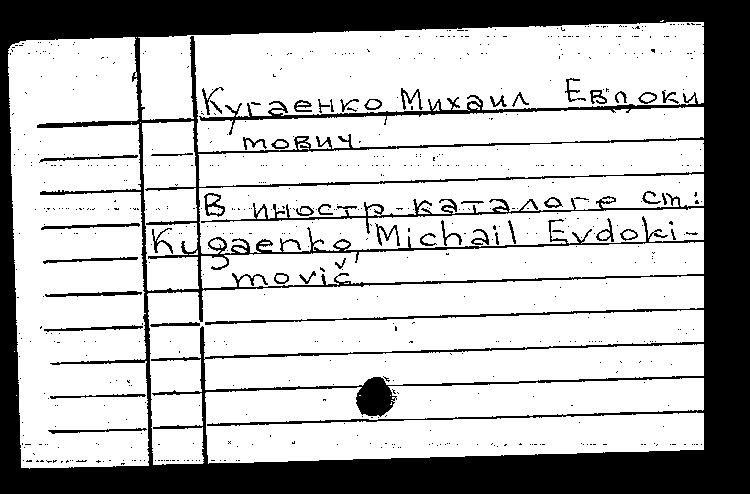 Кугаенко, Михаил Евдоки
мович.
В иностр. каталоге см.:
Kugaenko, Michail Evdoki-
movič.